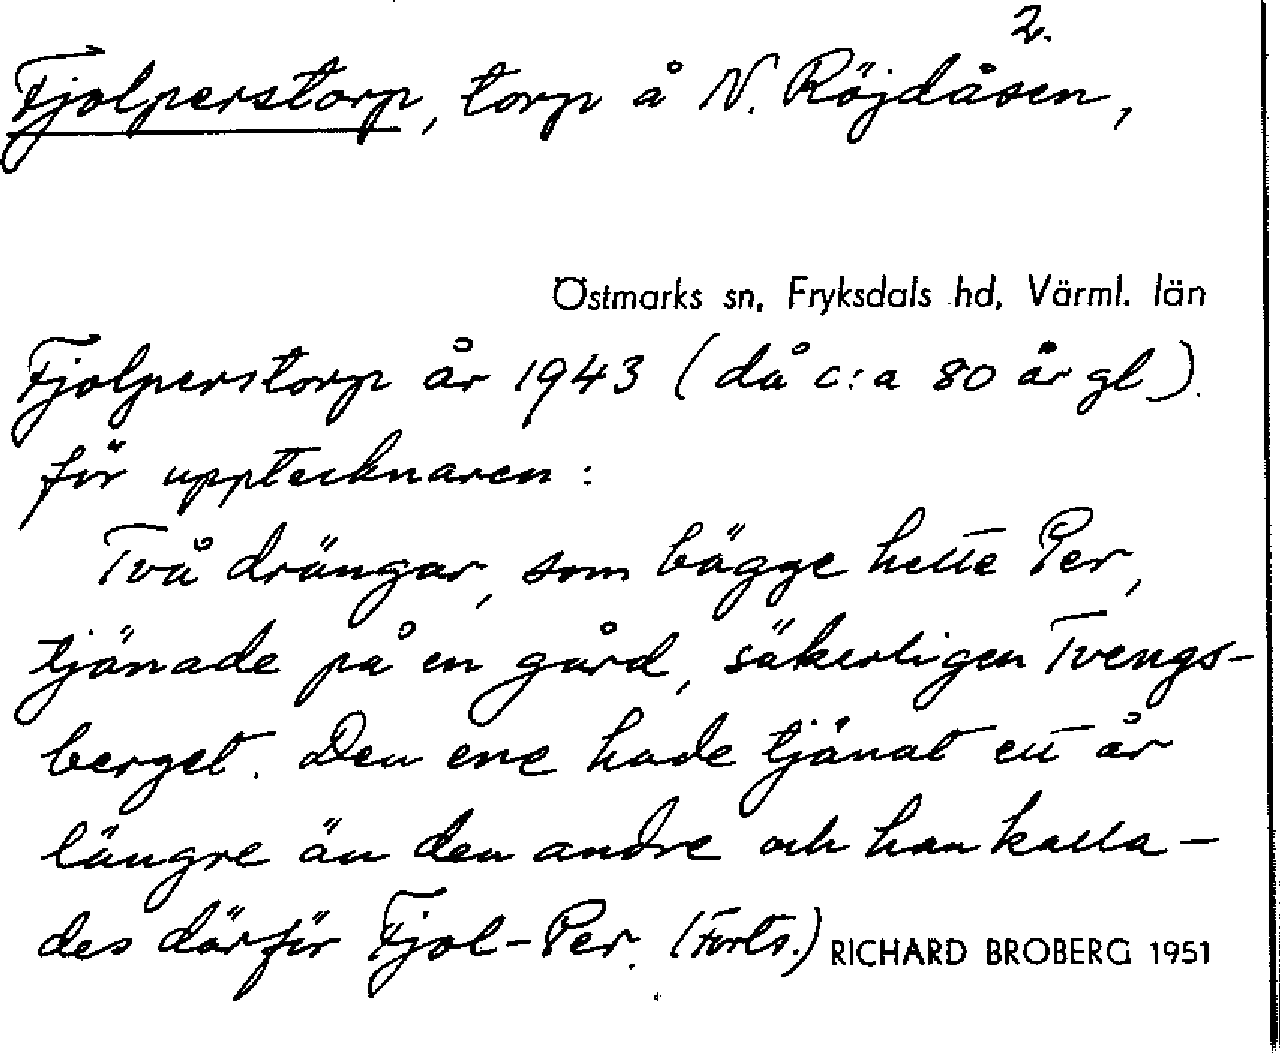 2.
Fjolperstorp, torp å N. Röjdåsen,
Östmarks sn, Fryksdals hd, Värml. län
Fjolperstorp år 1943 (då c:a 80 år gl).
för upptecknaren:
Två drängar, som bägge hette Per,
tjänade på en gård, säkerligen Tvengs-
berget. Den ene hade tjänat ett år
längre än den andre och han kalla-
des därför Fjol-Per. (Forts.) RICHARD BROBERG 1951